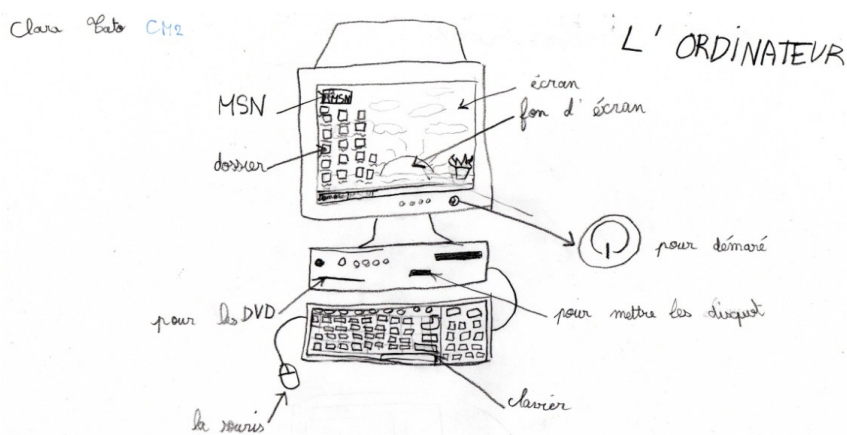 Clara Tato CM2
L' ORDINATEUR
MSN
MSN
écran
fon d' écran
dossier
pour démaré
pour les DVD
pour mettre les disquet
clavier
la souris